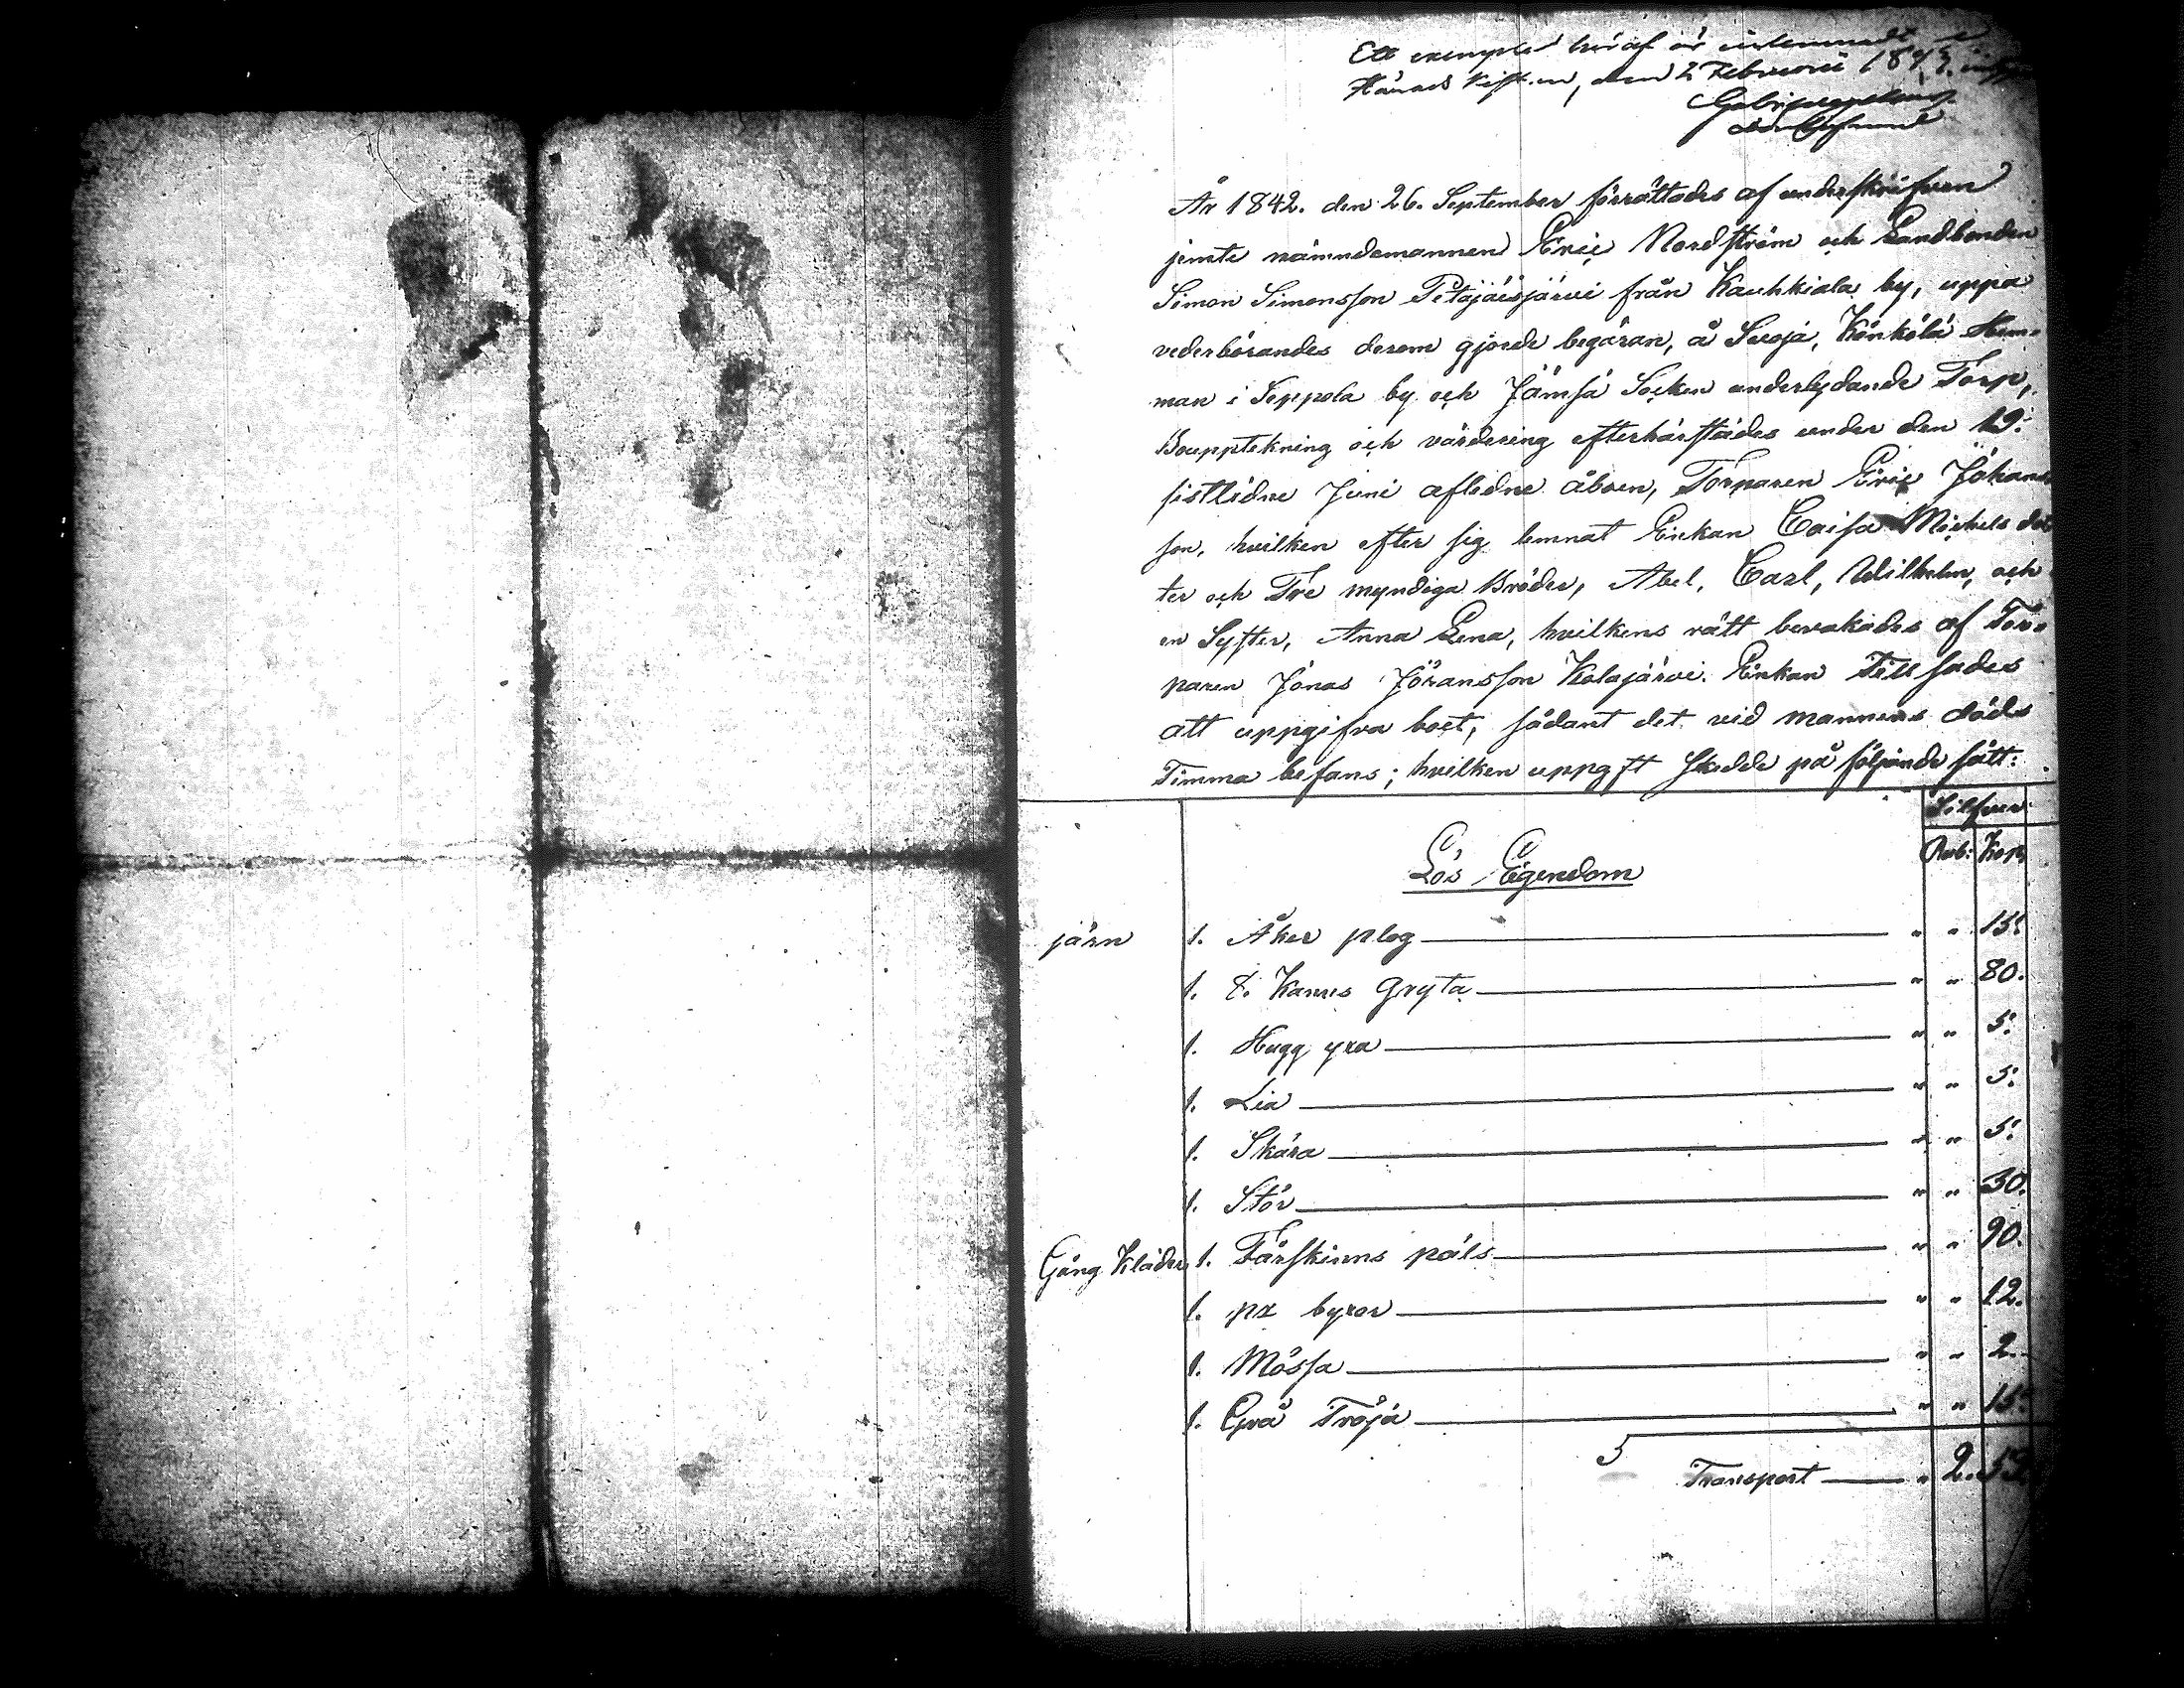 Ett exemplar häraf är inlemnadt
Härads Rätten, den 2 Februarii 1843.
År 1842. den 26. September förrättades af underskrifven
jemte nämndemannen Eric Nordström och Landbonden
Simon Simonsson Petäjäisjärvi från Kauhkiala by, uppå
vederbörandes derom gjorde begäran, å Suoja, Könkölä Hem-
man i Seppola by och Jämsä Socken underlydande Torp,
Bouppteckning och värdering efter härstädes under den 19:
sistlidne Juni aflidne åboen, Torparen Eric Johans
son, hvilken efter sig lemnat Enkan Caisa Michels dot
ter och Tre myndiga Bröder, Abel, Carl, Wilhelm, och
en Syster, Anna Lena, hvilkens rätt bevakades af Tor-
paren Jonas Jöransson Kolajärvi. Enkan Tillsades
att uppgifva boet, sådant det vid mannens döds
Timma befans; hvilken uppgift skedde på följande sätt:
Silfver
Rub: Kop
Lös Egendom
järn 1. Åker plog " " 15:
1. 8. Kanns Gryta " " 80.
1. Hugg yxa " " 5:
1. Lia " " 5:
1. Skära " " 5:
1. Stör " " 30.
Gång Kläder 1. Fårskinns päls " " 90.
1. pr byxor " " 12.
1. Mössa " " 2.
1. Grå Tröja " " 15:
Transport " 2. 59.